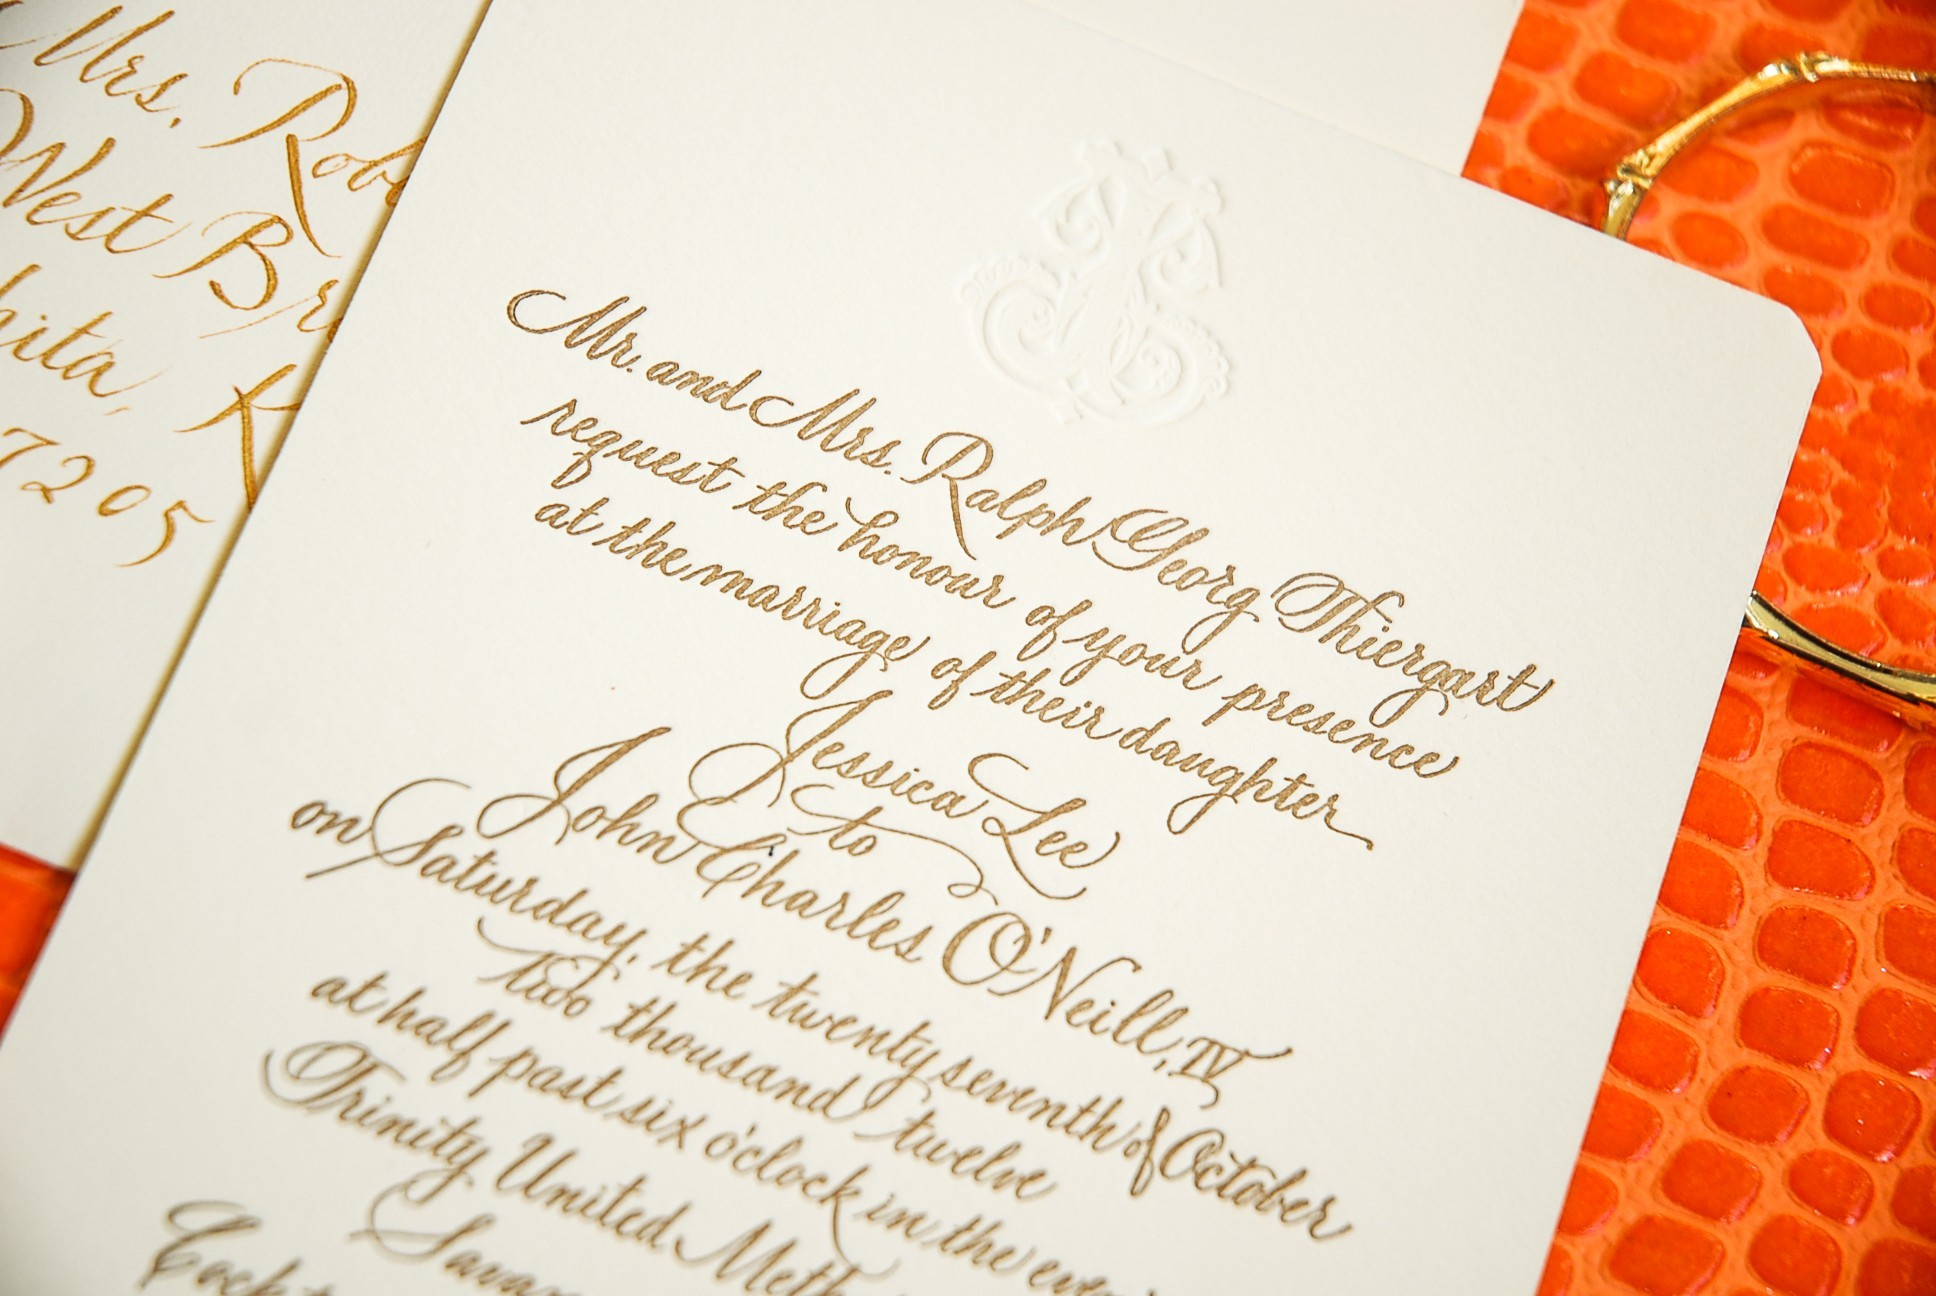 Mrs. Rob
West Br
hita, K
7205
Mr. and Mrs. Ralph Georg Thiergart
request the honour of your presence
at the marriage of their daughter
Jessica Lee
to
John Charles O'Neill, IV
on Saturday, the twenty seventh of October
two thousand twelve
at half past six o'clock in the eveni
Trinity United Meth
Savan
Cockt